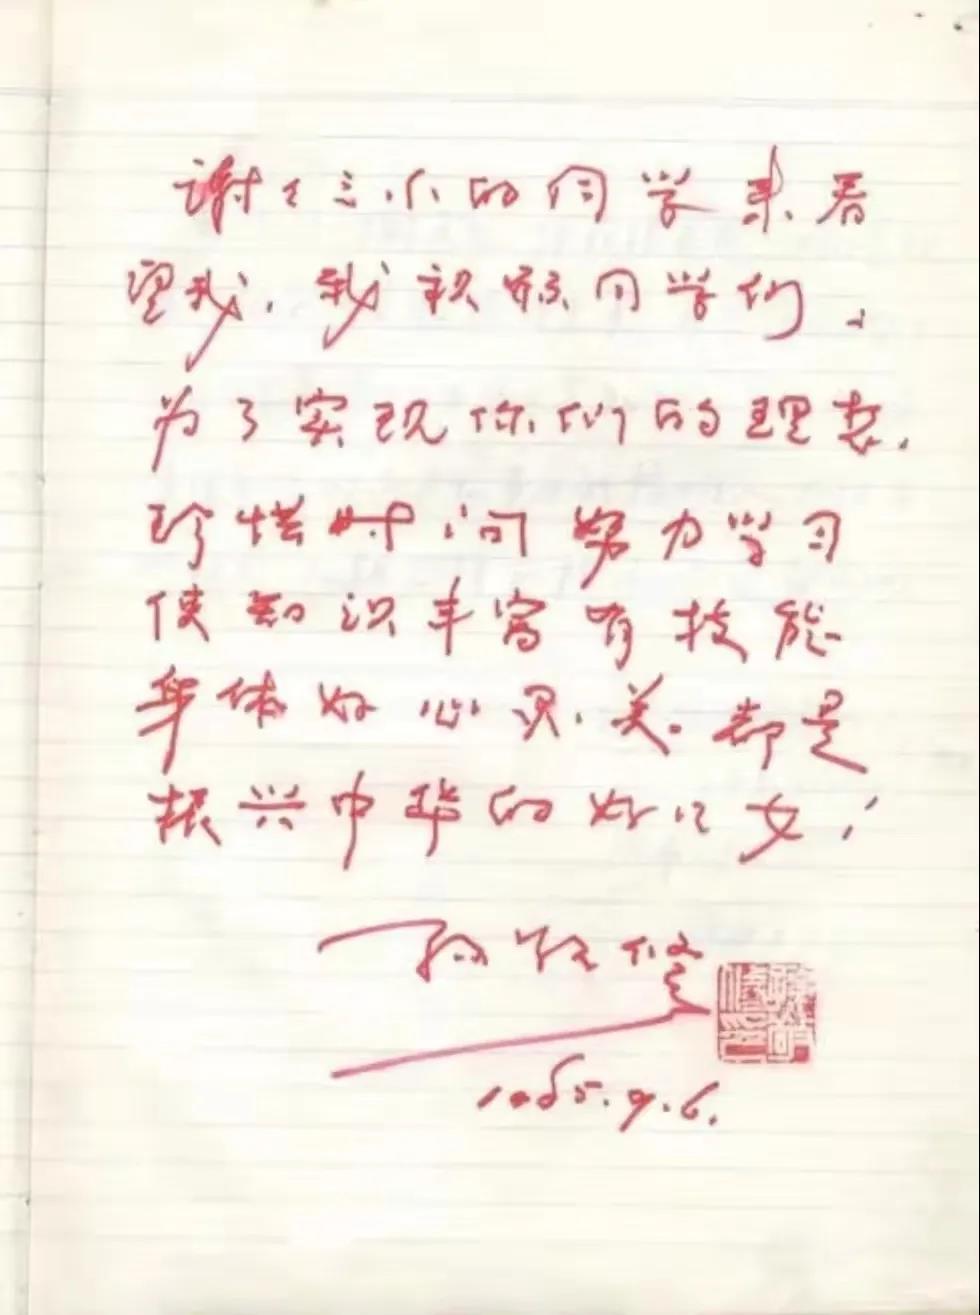 谢谢三小的同学来看
望我，我祝愿同学们、
为了实现你们的理想，
珍惜时间努力学习
使知识丰富有技能
身体好心灵美。都是
振兴中华的好儿女！
孙敬修
1985.9.6.